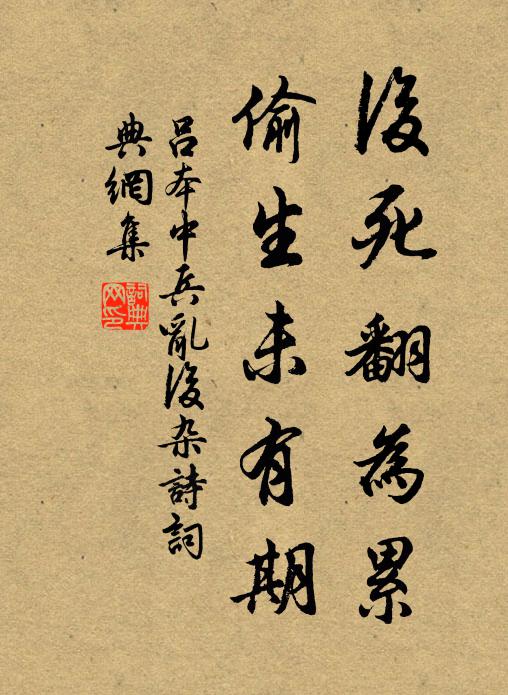 後死翻為累
偷生未有期
吕本中兵亂後杂詩詞
典網集
詞典
网印